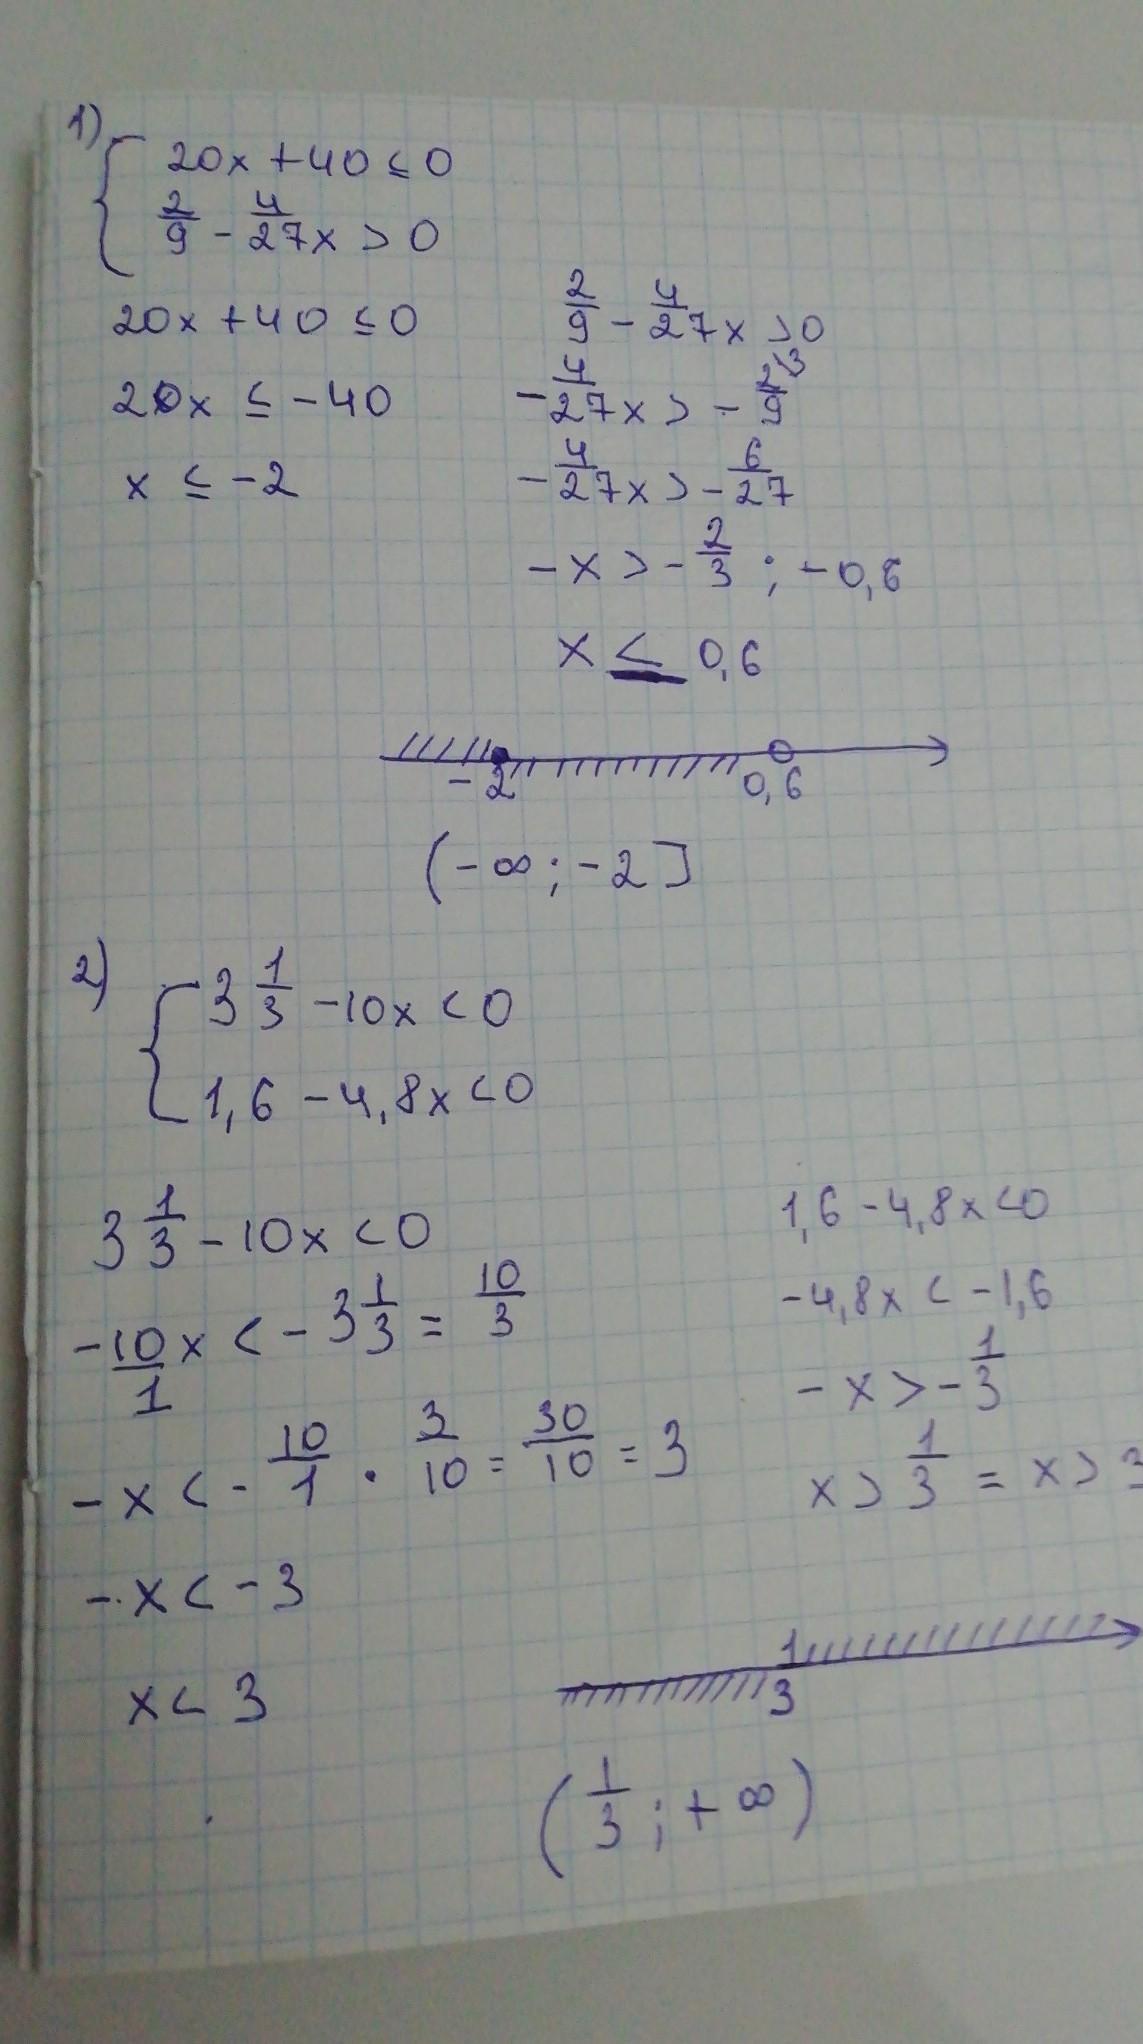 1)
20x + 40 ≤ 0
2/9 - 4/27x > 0
20x + 40 ≤ 0
20x ≤ -40
x ≤ -2
2/9 - 4/27x > 0
-4/27x > - 2\3/9
-4/27x > - 6/27
-x > - 2/3 ; -0,6
x ≤ 0,6
-2 0,6
(-∞; -2]
2)
3 1/3 - 10x < 0
1,6 - 4,8x < 0
3 1/3 - 10x < 0
-10/1 x < - 3 1/3 = 10/3
-x < - 10/1 · 3/10 = 30/10 = 3
-x < -3
x < 3
1,6 - 4,8x < 0
-4,8x < -1,6
-x > - 1/3
x > 1/3 = x >
1/3
(1/3 ; + ∞)